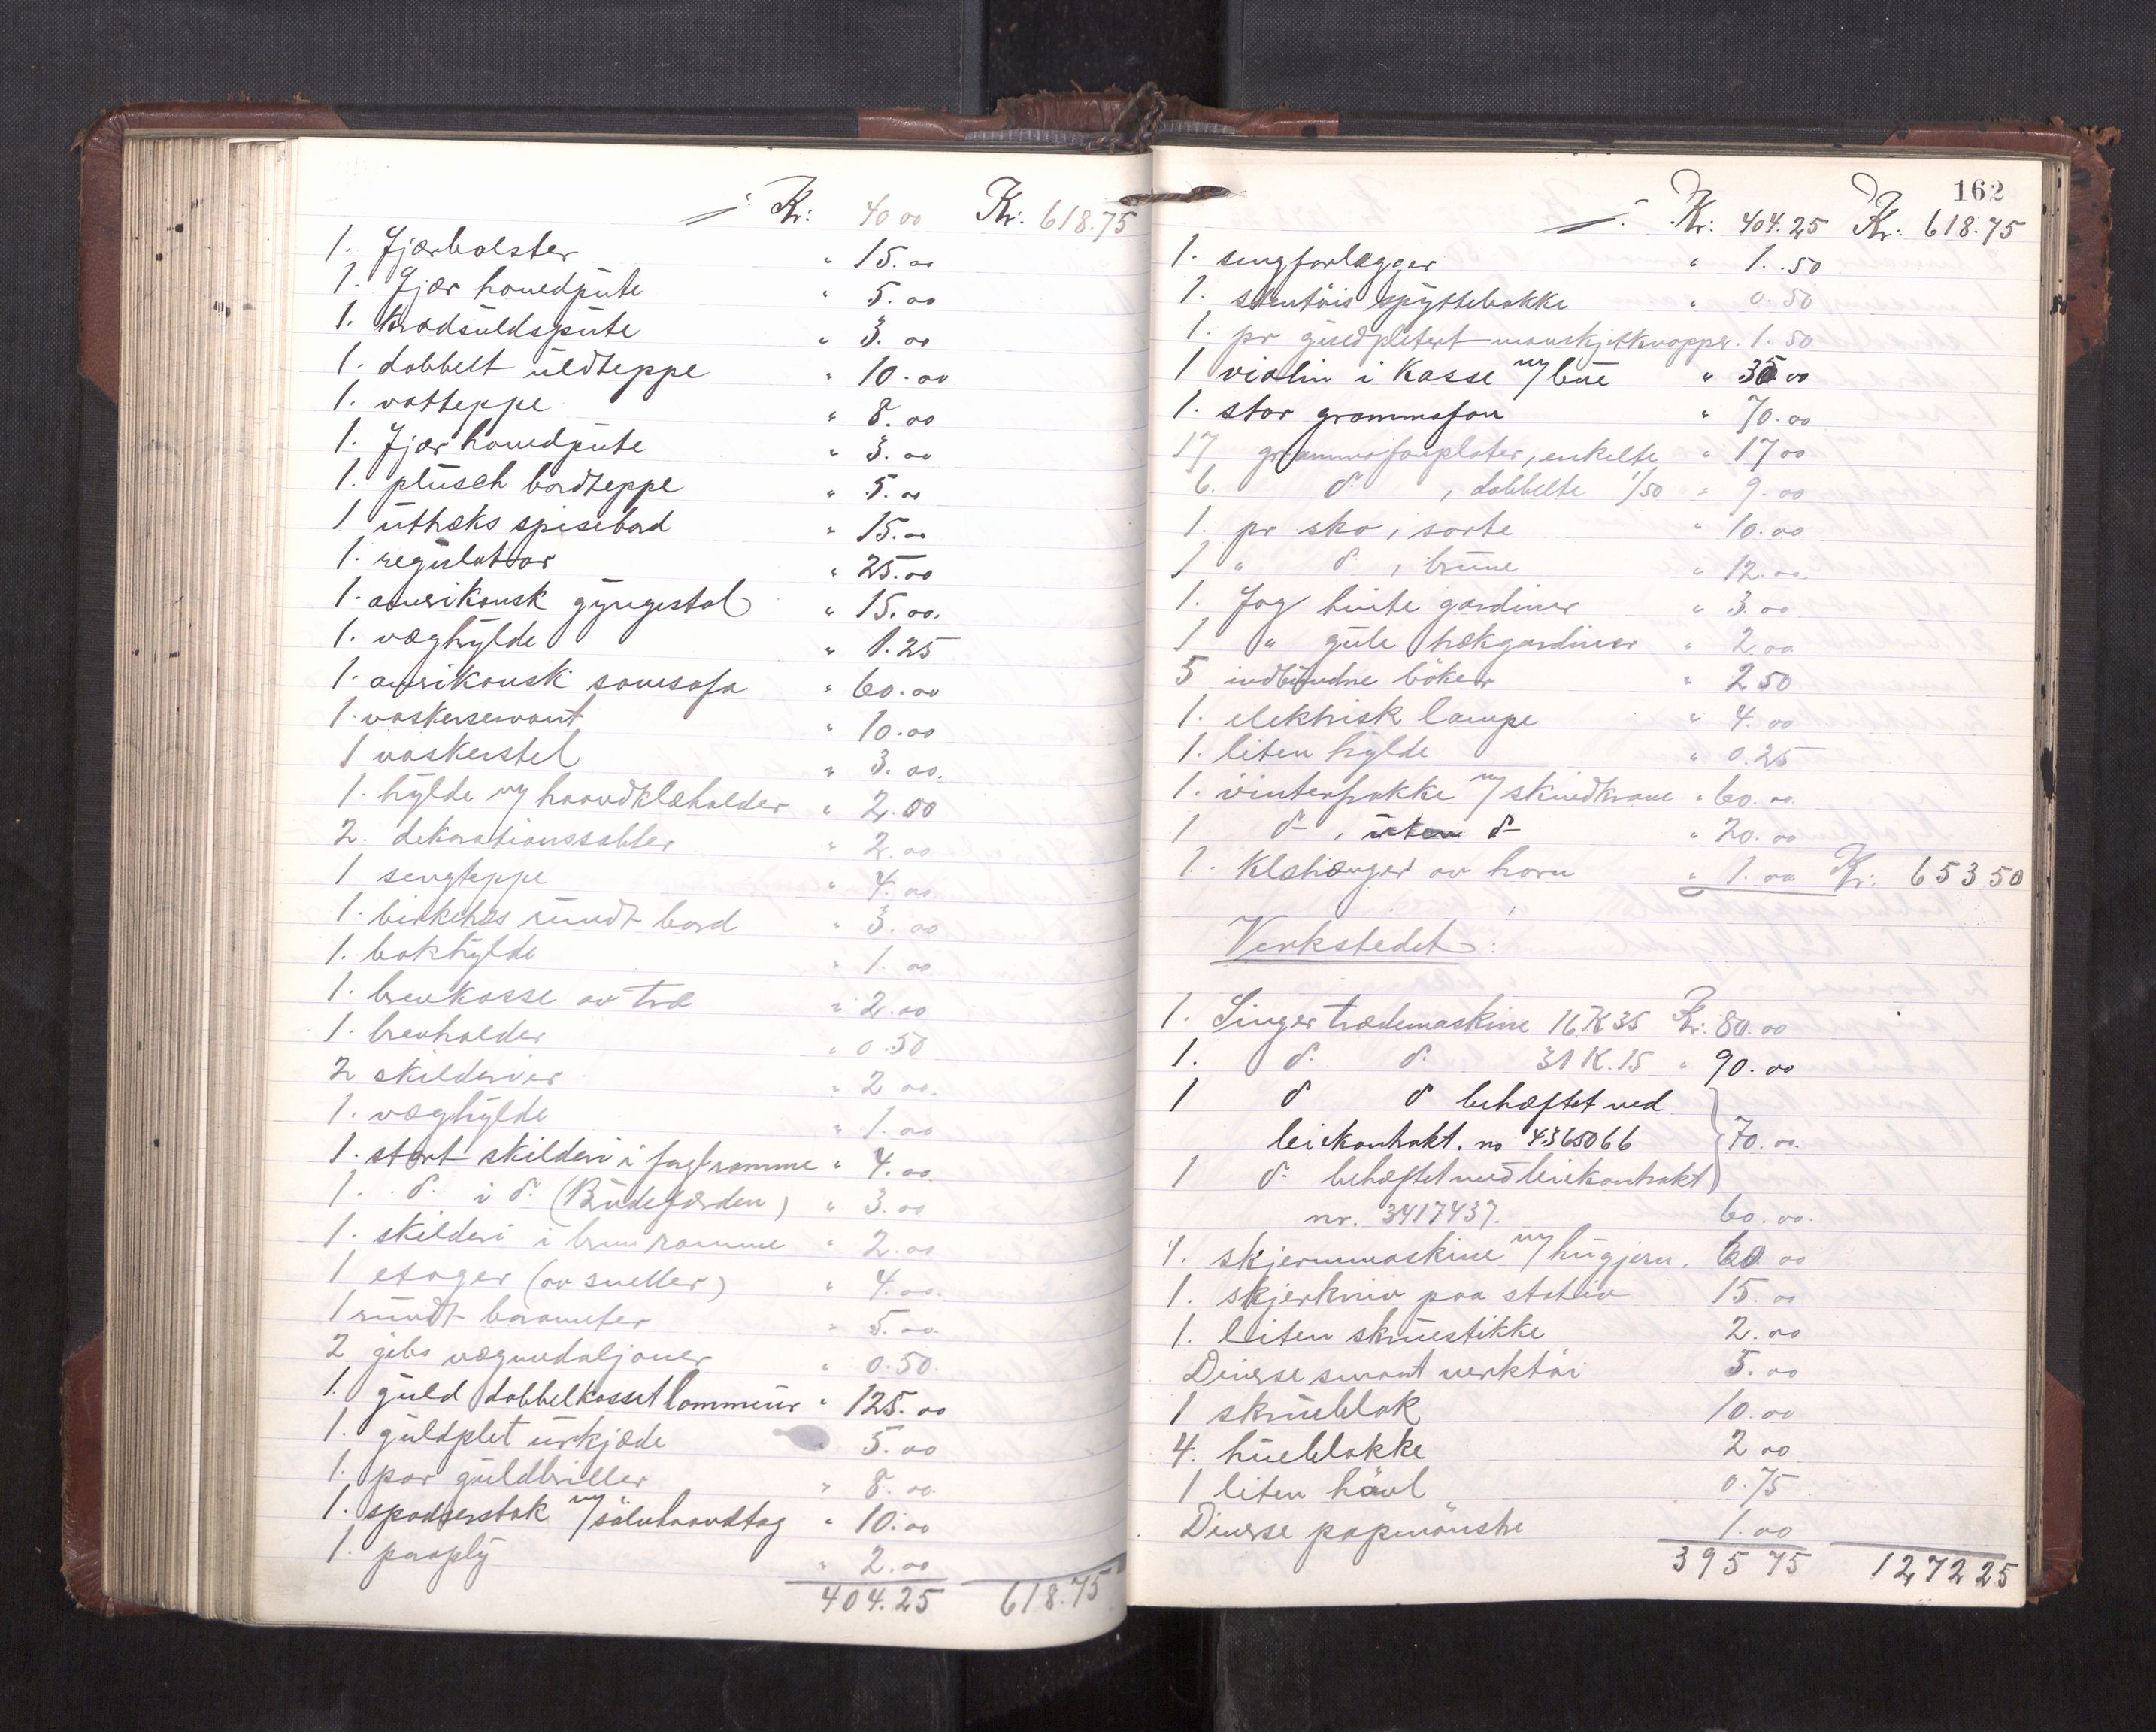 Kr: 40 00 Kr: 618.75
1. Fjærbolster " 15.00
1. Fjær hovedpute " 5.00
1. krøduldspute " 3.00
1. dobbelt uldteppe " 10.00
1. vatteppe " 8.00
1. Fjær hovedpute " 3.00
1. plüsch bordteppe " 5.00
1 uttræks spisebord " 15.00
1. regulator " 25.00
1. amerikansk gyngestol " 15.00.
1. væghylde " 1.25
1. amrikansk sovesofa " 60.00
1. vaskeservant " 10.00
1 vaskestel " 3.00.
1. hylde m/ haandklæholder " 2.00
2. dekorationssabler " 2.00
1 sengteppe " 4.00
1. birketræs rundt bord " 3.00
1. bokhylde " 1.00
1. brevkasse av træ " 2.00
1. brevholder " 0.50
2 skilderier " 2 00.
1. væghylde " 1.00
1. stort skilderi i forgl ramme " 4.00
1. d: i d: (Brudefærden) " 3.00
1. skilderi i brun ramme " 2.00
1 etager (av sneller) " 4.00.
1 rundt barometer " 5.00.
2 gibs vægmedaljoner " 0.50.
1. guld dobbelkasset lommeur " 125.00
1. guldplet urkjæde " 5.00
1. par guldbriller " 8.00
1. spadserstok m/ sølvhaandtag " 10.00
1. paraply " 2.00
404.25 618.75
162
Kr: 404.25 Kr: 618.75
1. sengforlægger " 1.50
1. stentøis spyttebakke " 0.50
1. pr guldpletert manskjetknapper. 1.50
1 violin i kasse m/ bue " 35.00
1. stor grammofon " 70.00
17 grammofonplater, enkelte " 17 00
6. d: , dobbelte 1/50 " 9.00
1. pr sko, sorte " 10.00
1 " d: , brune " 12.00
1. Fag hvite gardiner " 3.00
1 " gule trækgardiner " 2.00
5 indbundne bøker " 2 50
1. elektrisk lampe " 4.00
1. liten hylde " 0.25
1. vinterfrakke m/ skindkrave " 60.00.
1 d: , uten d: " 20.00
1. Klæhænger av horn " 1.00 Kr: 653 50
Verkstedet:
1. Singer trædemaskine 16 K 35 Kr: 80.00
1. d: d: 31 K. 15 " 90.00
1 d: d: behæftet ved
leiekontrakt. no 4365066 70.00.
1 d: behæftet ved leiekontrakt
nr. 3417437. 60.00.
1. skjermmaskine m/ hugjern. 60 00
1. skjerkniv paa stativ 15.00
1. liten skruestikke 2.00
Diverse smaat verktøi 5.00
1 skrueblok 10.00
4. hueblokke 2 00
1 liten høvl 0.75
Diverse papmønstre 1.00
395 75 1272 25